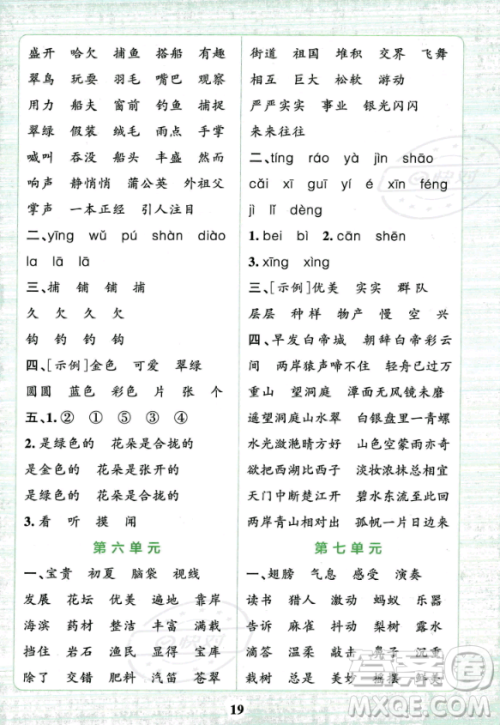 盛开 哈欠 捕鱼 搭船 鹦鹉
翠鸟 玩耍 羽毛 嘴巴 观察
用力 船夫 窗前 钓鱼 捕捉
翠绿 假装 绒毛 雨点 手掌
喊叫 吞没 船头 丰盛 然而
响声 静悄悄 蒲公英 外祖父
掌声 一本正经 引人注目
二、yīng wǔ pú shàn diào
la lā lā
三、捕 铺 铺 捕
欠 欠 久 久
钩 钓 钓 钓
四、[示例]金色 可爱 翠绿
圆圆 蓝色 彩色 片 张 个
五、1.② ① ⑤ ③ ④
2.是绿色的 花朵是合拢的
是金色的 花朵是张开的
是绿色的 花朵是合拢的
3.看 听 摸 闻
第六单元
一、宝贵 初夏 脑袋 视线
发展 花坛 优美 遍地 靠岸
海滨 药材 整洁 丰富 栽树
挡住 岩石 渔民 宝库
除了 交错 肥料 汽笛 亚热带
街道 祖国 堆积 交界 飞舞
相互 巨大 松软 游动
严严实实 事业 银光闪闪
来来往往
二、tíng ráo yà jìn shāo
cǎi xī guī yí xīn féng
jì lǐ dèng
1.bei bì 2.cān shēn
3.xīng xìng
三、[示例]优美 实实 群队
层层 样 种 物产 慢 空 兴
四、早发白帝城 朝辞白帝彩云
间 两岸猿声啼不住 轻舟已过万
重山 望洞庭 潭面无风镜未磨
遥望洞庭山水翠 白银盘里一青螺
水光潋滟晴方好 山色空蒙雨亦奇
欲把西湖比西子 淡妆浓抹总相宜
天门中断楚江开 碧水东流至此回
两岸青山相对出 孤帆一片日边来
第七单元
一、翅膀 气息 感受 演奏
读书 猎人 激动 蚂蚁 乐器
告诉 麻雀 抖动 梨树 露水
滴答 总是 美妙
19